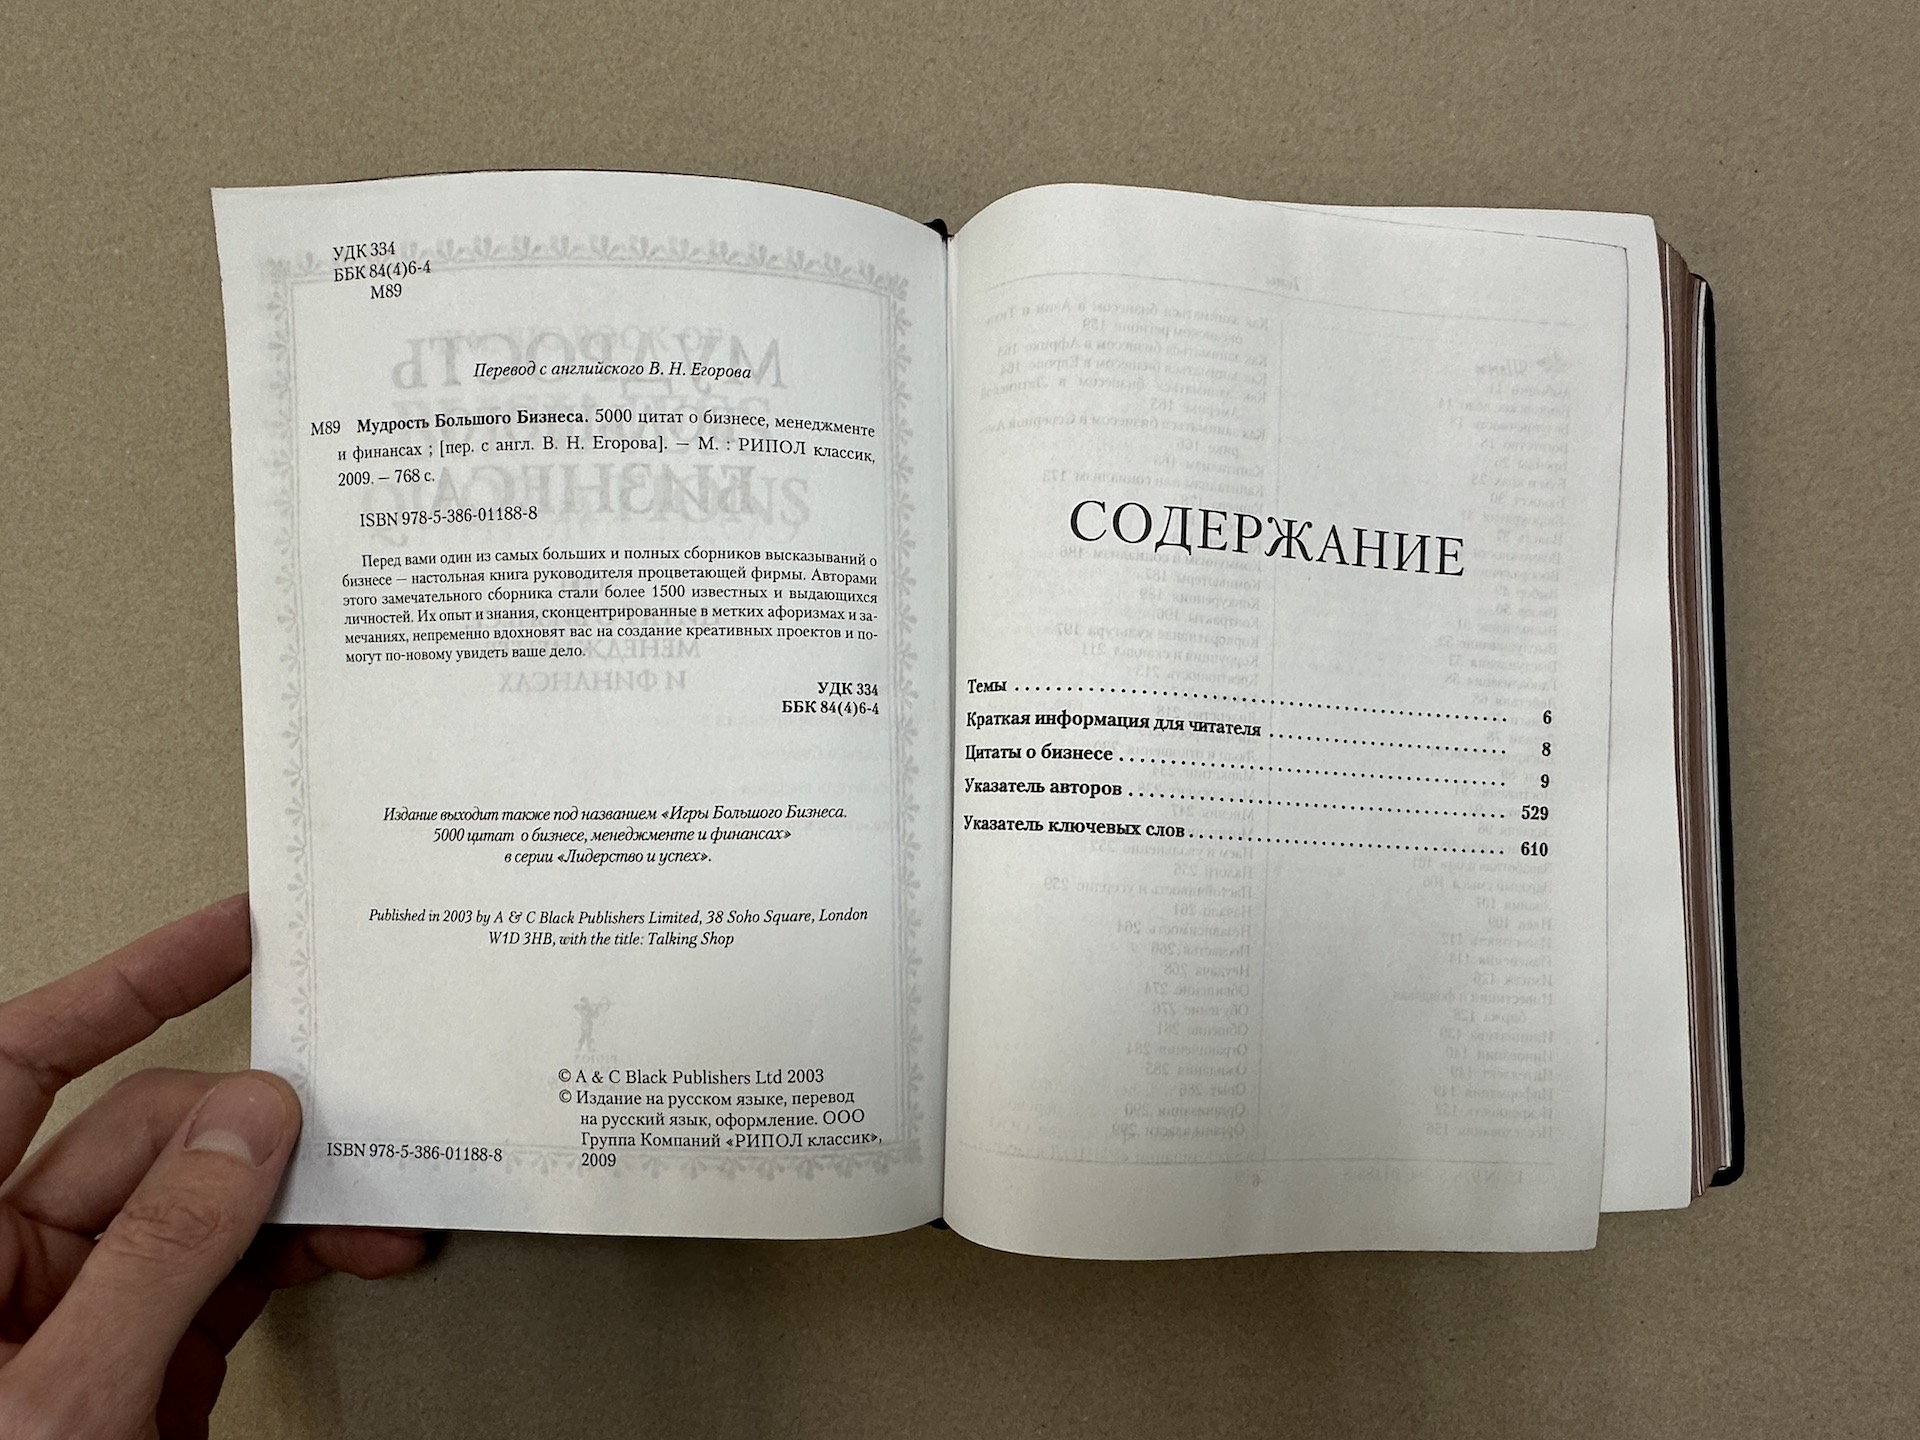 УДК 334
ББК 84(4)6-4
М89
Перевод с английского В. Н. Егорова
М89 Мудрость Большого Бизнеса. 5000 цитат о бизнесе, менеджменте
и финансах ; [пер. с англ. В. Н. Егорова]. — М. : РИПОЛ классик,
2009. — 768 с.
ISBN 978-5-386-01188-8
Перед вами один из самых больших и полных сборников высказываний о
бизнесе — настольная книга руководителя процветающей фирмы. Авторами
этого замечательного сборника стали более 1500 известных и выдающихся
личностей. Их опыт и знания, сконцентрированные в метких афоризмах и за-
мечаниях, непременно вдохновят вас на создание креативных проектов и по-
могут по-новому увидеть ваше дело.
УДК 334
ББК 84(4)6-4
Издание выходит также под названием «Игры Большого Бизнеса.
5000 цитат о бизнесе, менеджменте и финансах»
в серии «Лидерство и успех».
Published in 2003 by A & C Black Publishers Limited, 38 Soho Square, London
W1D 3HB, with the title: Talking Shop
© A & C Black Publishers Ltd 2003
© Издание на русском языке, перевод
на русский язык, оформление. ООО
Группа Компаний «РИПОЛ классик»,
2009
ISBN 978-5-386-01188-8
СОДЕРЖАНИЕ
Темы 6
Краткая информация для читателя 8
Цитаты о бизнесе 9
Указатель авторов 529
Указатель ключевых слов 610